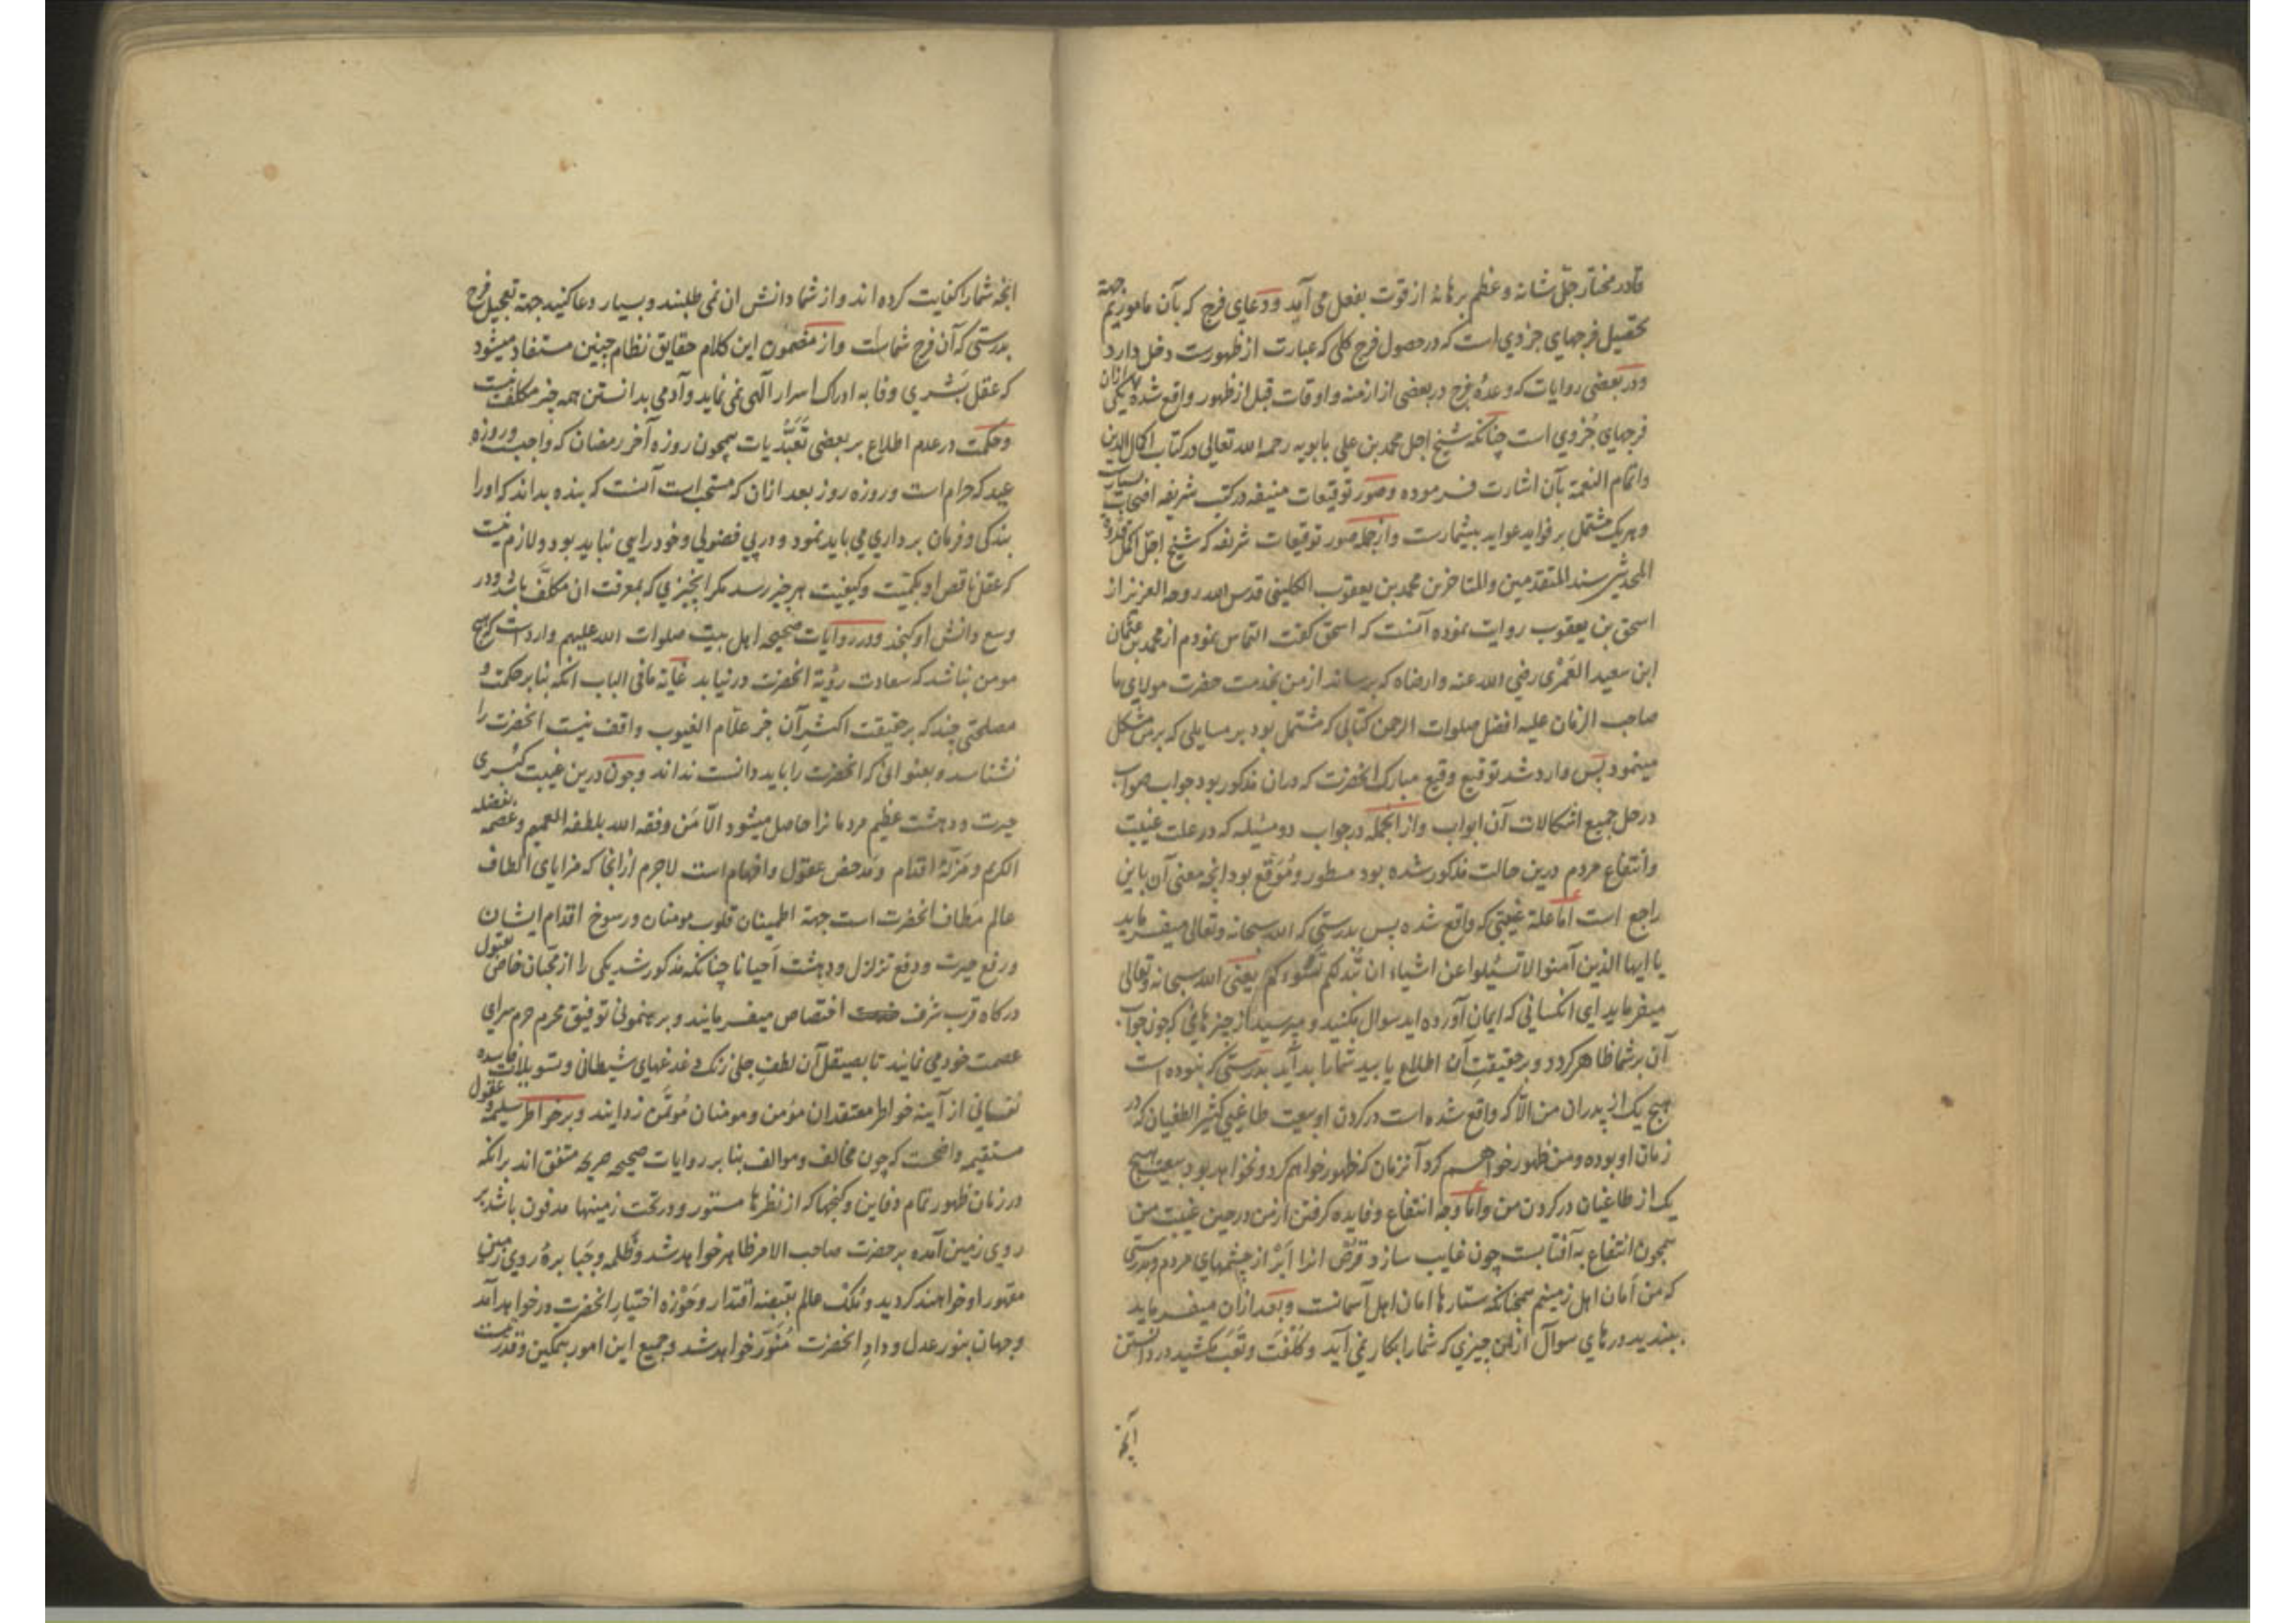 قادر مختار جل شانه و عظم برهانه از قوت بفعل می آید و دعای فرج که بآن ماموریم جهة
تحصیل فرجهای جزوی است که در حصول فرج کلی که عبارت از ظهورست دخل دارد
و در بعضی روایات که وعدۀ فرج در بعضی از ازمنه و اوقات قبل از ظهور واقع شده یکی ازان
فرجهای جزوی است چنانکه شیخ اجل محمد بن علی بابویه رحمه الله تعالی در کتاب اکمال الدین
و اتمام النعمة بآن اشارت فرموده و صور توقیعات منیفه در کتب شریفه اصحاب بسیار
و هریک مشتمل بر فواید عواید بیشمارست و از جمله صور توقیعات شریفه که شیخ اجل اکمل
المحدثین سند المتقدمین والمتاخرین محمد بن یعقوب الکلینی قدس الله روحه العزیز از
اسحق بن یعقوب روایت نموده آنست که اسحق کفت التماس نمودم از محمد بن عثمان
ابن سعید العمری رضی الله عنه و ارضاه که برساند از من بخدمت حضرت مولای ما
صاحب الزمان علیه افضل صلوات الرحمن کتابی که مشتمل بود بر مسایلی که بر من مشکل
مینمود پس وارد شد توقیع وقیع مبارک انحضرت که دران مذکور بود جواب صواب
در حل جمیع اشکالات آن ابواب و از انجمله در جواب دو مسئله که در علت غیبت
و انتفاع مردم درین حالت مذکور شده بود مسطور و موقع بود انچه معنی آن باین
راجع است اما علة غیبتی که واقع شده پس بدرستی که الله سبحانه و تعالی میفرماید
یا ایها الذین آمنوا لا تسئلوا عن اشیاء ان تبدلکم تسؤکم یعنی الله سبحانه و تعالی
میفرماید ای انکسانی که ایمان آورده اید سوال مکنید و مپرسید از چیزهایی که چون جواب
آن بر شما ظاهر کردد و بر حقیقت آن اطلاع یابید شما را بد آید بدرستی که نبوده است
هیچ یک از پدران من الا که واقع شده است در کردن او بیعت طاغیی کثیر الطغیان که در
زمان او بوده و من ظهور خواهم کرد آنزمان که ظهور خواهم کرد و نخواهد بود بیعت هیچ
یک از طاغیان در کردن من و اما وجه انتفاع و فایده کرفتن از من در حین غیبت من
همچون انتفاع به آفتابست چون غایب سازد قرص انرا ابر از چشمهای مردم و بدرستی
که من امان اهل زمینم همچنانکه ستارها امان اهل آسمانست و بعد ازان میفرماید
ببندید درهای سوال از چیزی که شما را بکار نمی آید و کلفت و تعب مکشید در دانستن
آنچه
انچه شما را کفایت کرده اند و از شما دانش ان نمی طلبند و بسیار دعا کنید جهة تعجیل فرج
بدرستی که آن فرج شماست و از مضمون این کلام حقایق نظام چنین مستفاد میشود
که عقل بشری وفا به ادراک اسرار الهی نمی نماید و آدمی بدانستن همه چیز مکلف نیست
و حکمت در عدم اطلاع بر بعضی تعبدیات همچون روزه آخر رمضان که واجبست و روزه
عید که حرام است و روزه روز بعد ازان که مستحب است آنست که بنده بداند که او را
بندکی و فرمان برداری می باید نمود و در پی فضولی و خودرایی نباید بود و لازم نیست
که عقل ناقص او بکمیت و کیفیت هر چیز رسد مکر انچیزی که بمعرفت ان مکلف باشد و در
وسع دانش او کنجد و در روایات صحیحه اهل بیت صلوات الله علیهم وارد است که هیچ
مومن نباشد که سعادت رؤیة انحضرت در نیابد غایة ما فی الباب انکه بنا بر حکمت و
مصلحتی چند که بر حقیقت اکثر آن جز علام الغیوب واقف نیست انحضرت را
نشناسد و بعنوانی که انحضرت را باید دانست نداند و چون درین غیبت کبری
حیرت و دهشت عظیم مردمانرا حاصل میشود الا من وفقه الله بلطفه العمیم و عصمه بفضله
الکریم و مزلۀ اقدام و مدحض عقول و افهام است لاجرم از انجا که مزایای الطاف
عالم مطاف انحضرت است جهة اطمینان قلوب مومنان و رسوخ اقدام ایشان
و رفع حیرت و دفع تزلزل و دهشت احیانا چنانکه مذکور شد یکی را از محبان خاص مقبول
درکاه قرب شرف اختصاص میفرمایند و برهنمونی توفیق محرم حرم سرای
عصمت خود می نمایند تا بصیقل آن لطف جلی زنک دغدغهای شیطانی و تسویلات فاسده
نفسانی از آینه خواطر معتقدان مؤمن و مومنان مؤتمن زدایند و بر خواطر سلیمه و عقول
مستقیمه واضحست که چون مخالف و موالف بنا بر روایات صحیحه صریحه متفق اند برانکه
در زمان ظهور تمام دفاین و کنجها که از نظرها مستور و در تحت زمینها مدفون باشد بر
روی زمین آمده بر حضرت صاحب الامر ظاهر خواهد شد و ظلمه و جبابرۀ روی زمین
مقهور او خواهند کردید و ملک عالم بقبضه اقتدار و حوزه اختیار انحضرت در خواهد آمد
و جهان بنور عدل و داد انحضرت منور خواهد شد و جمیع این امور بتمکین و قدرت